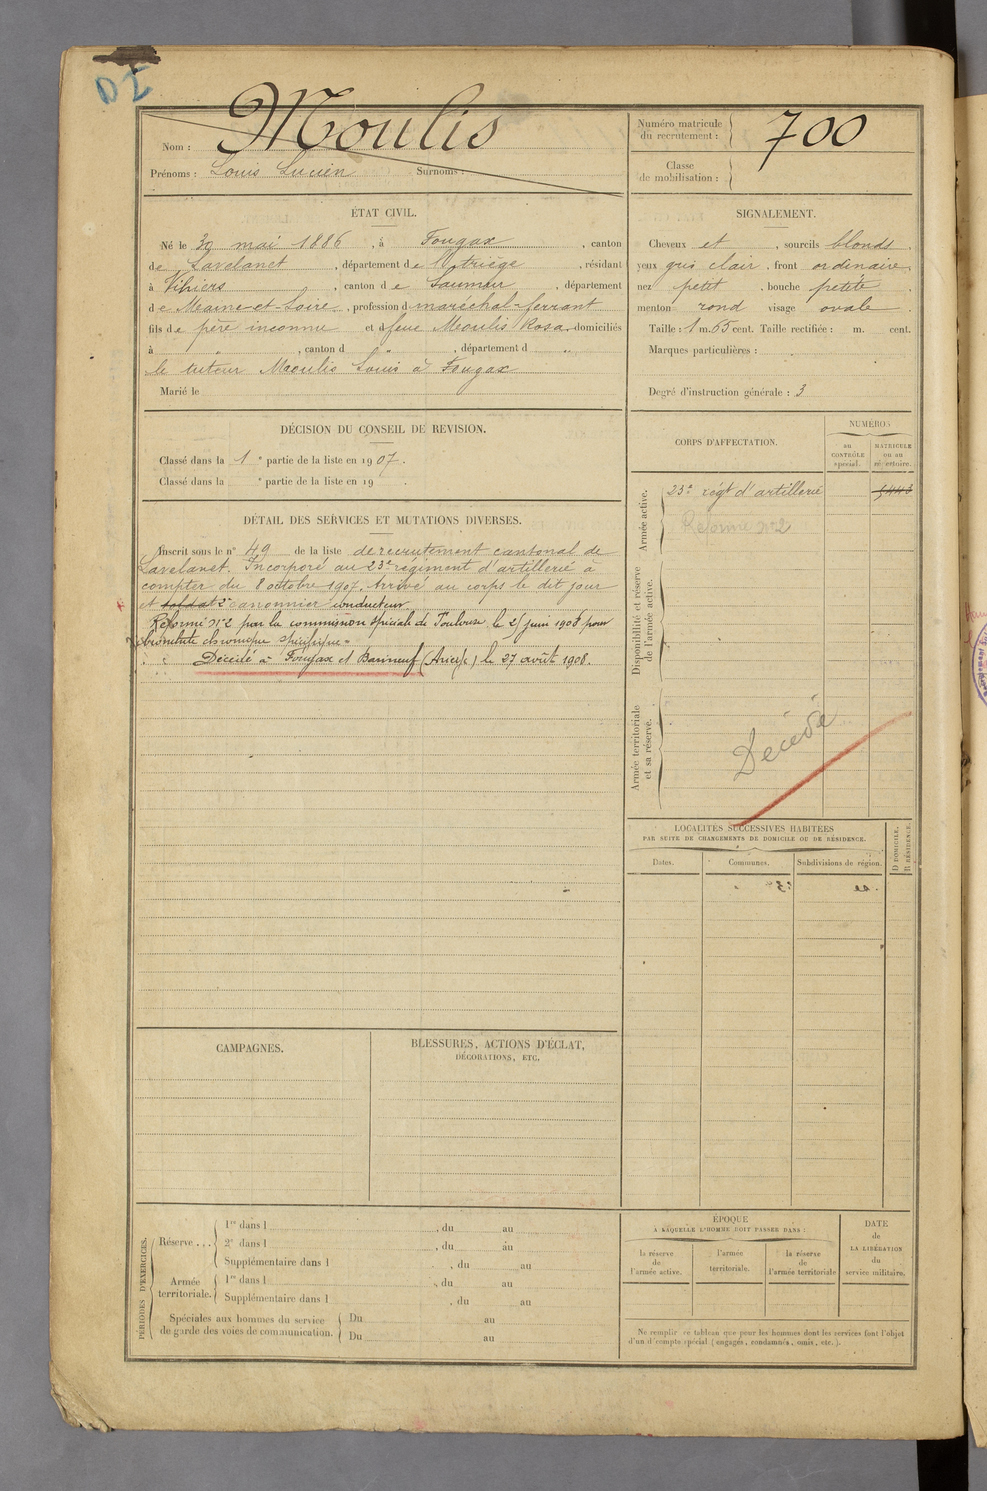 Moulis
Nom :
Prénoms : Louis Lucien Surnoms :
Numéro matricule
du recrutement :
700
Classe
de mobilisation :
ÉTAT CIVIL.
Né le 30 mai 1886, à Fougax, canton
de Lavelanet, département de l'Ariège, résidant
à Vihiers, canton de Saumur, département
de Maine-et-Loire, profession d maréchal-ferrant
fils de père inconnu et d feue Moulis Rosa, domiciliés
à " , canton d " , département d "
le tuteur Moulis Louis à Fougax
Marié le
SIGNALEMENT.
Cheveux et , sourcils blonds,
yeux gris clair, front ordinaire,
nez petit, bouche petite
menton rond visage ovale
Taille : 1 m. 65 cent. Taille rectifiée : m. cent.
Marques particulières :
Degré d'instruction générale : 3
DÉCISION DU CONSEIL DE REVISION.
Classé dans la 1 e partie de la liste en 1907.
Classé dans la e partie de la liste en 19 .
CORPS D'AFFECTATION.
NUMÉROS
au
CONTRÔLE
spécial.
MATRICULE
ou au
répertoire.
Armée active.
23e régt d'artillerie
Réformé n° 2
Disponibilité et réserve
de l'armée active.
Armée territoriale
et sa réserve.
Décédé
DÉTAIL DES SERVICES ET MUTATIONS DIVERSES.
Inscrit sous le n° 49 de la liste de recrutement cantonal de
Lavelanet. Incorporé au 23e régiment d'artillerie à
compter du 8 octobre 1907. Arrivé au corps le dit jour
et soldat 2e canonnier conducteur.
Réformé n° 2 par la commission spéciale de Toulouse le 25 juin 1908 pour
bronchite chronique spécifique
Décédé à Fougax et Barrineuf (Ariège) le 27 août 1908.
LOCALITÉS SUCCESSIVES HABITÉES
PAR SUITE DE CHANGEMENTS DE DOMICILE OU DE RÉSIDENCE.
Dates.
Communes.
Subdivisions de région.
D DOMICILE.
R RÉSIDENCE.
CAMPAGNES.
BLESSURES, ACTIONS D'ÉCLAT,
DÉCORATIONS, ETC.
PÉRIODES D'EXERCICES.
Réserve ...
1re dans l , du au
2e dans l , du au
Supplémentaire dans l , du au
Armée
territoriale.
1re dans l , du au
Supplémentaire dans l , du au
Spéciales aux hommes du service
de garde des voies de communication.
Du au
Du au
ÉPOQUE
À LAQUELLE L'HOMME DOIT PASSER DANS :
la réserve
de
l'armée active.
l'armée
territoriale.
la réserve
de
l'armée territoriale
DATE
de
LA LIBÉRATION
du
service militaire.
Ne remplir ce tableau que pour les hommes dont les services font l'objet
d'un décompte spécial (engagés, condamnés, omis, etc.).